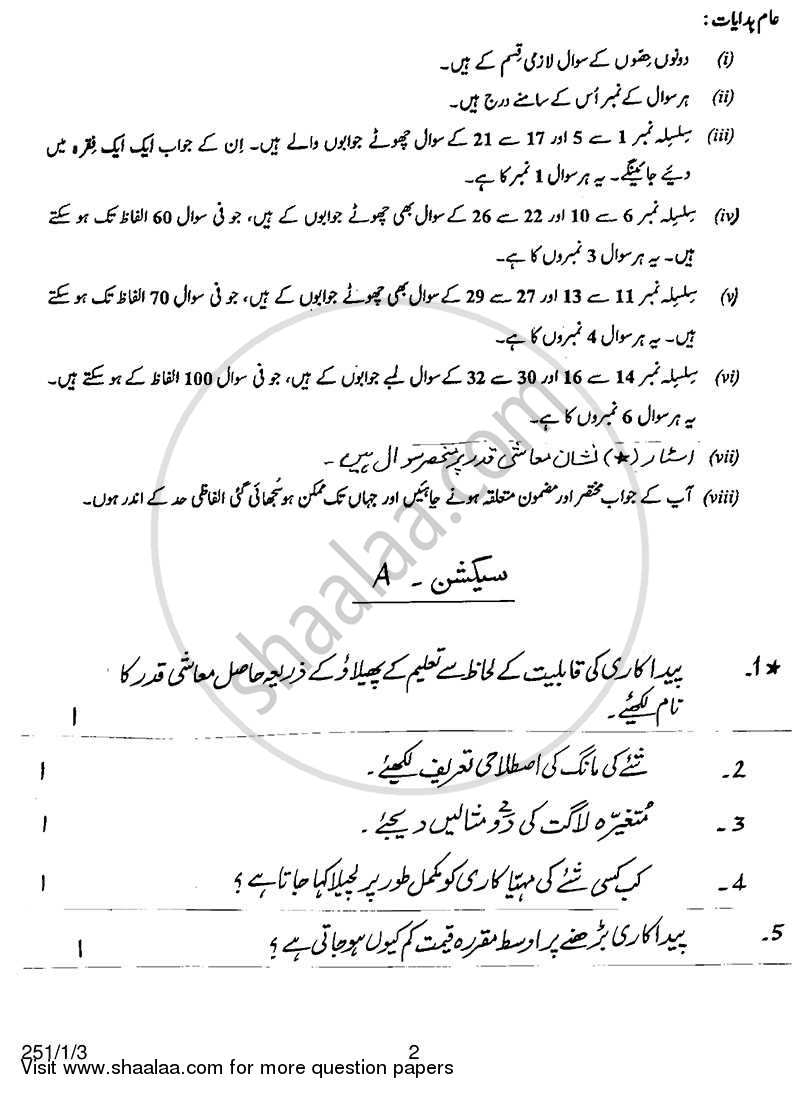 عام ہدایات :
(i) دونوں حصّوں کے سوال لازمی قسم کے ہیں۔
(ii) ہر سوال کے نمبر اُس کے سامنے درج ہیں۔
(iii) سِلسِلہ نمبر 1 سے 5 اور 17 سے 21 کے سوال چھوٹے جوابوں والے ہیں۔ اِن کے جواب ایک ایک فِقرہ میں
دیئے جائینگے۔ یہ ہر سوال 1 نمبر کا ہے۔
(iv) سِلسِلہ نمبر 6 سے 10 اور 22 سے 26 کے سوال بھی چھوٹے جوابوں کے ہیں، جو فی سوال 60 الفاظ تک ہو سکتے
ہیں۔ یہ ہر سوال 3 نمبروں کا ہے۔
(v) سِلسِلہ نمبر 11 سے 13 اور 27 سے 29 کے سوال بھی چھوٹے جوابوں کے ہیں، جو فی سوال 70 الفاظ تک ہو سکتے
ہیں۔ یہ ہر سوال 4 نمبروں کا ہے۔
(vi) سِلسِلہ نمبر 14 سے 16 اور 30 سے 32 کے سوال لمبے جوابوں کے ہیں، جو فی سوال 100 الفاظ کے ہو سکتے ہیں۔
یہ ہر سوال 6 نمبروں کا ہے۔
(vii) اسٹار (★) نشان معاشی قدر پر منحصر سوال ہیں۔
(viii) آپ کے جواب مختصر اور مضمون متعلقہ ہونے چاہئیں اور جہاں تک ممکن ہو سُجھائی گئی الفاظی حد کے اندر ہوں۔
سیکشن ۔ A
★1۔ پیداکاری کی قابلیت کے لحاظ سے تعلیم کے پھیلاؤ کے ذریعہ حاصل معاشی قدر کا
نام لکھئے۔ 1
2۔ شئے کی مانگ کی اصطلاحی تعریف لکھیئے۔ 1
3۔ مُتغیّرہ لاگت کی دو مثالیں دیجئے۔ 1
4۔ کب کسی شئے کی مہیّا کاری کو مکمل طور پر لچیلا کہا جاتا ہے؟ 1
5۔ پیداکاری بڑھنے پر اوسط مقررہ قیمت کم کیوں ہو جاتی ہے؟ 1
251/1/3 2
Visit www.shaalaa.com for more question papers
shaalaa.com